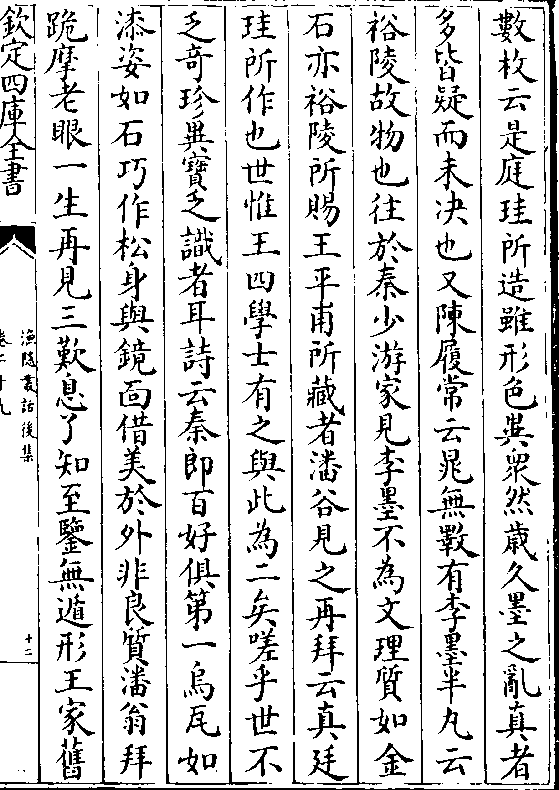 數枚云是庭珪所造雖形色異衆然歳久墨之亂真者
多皆疑而未決也又陳履常云晁無斁有李墨半丸云
裕陵故物也往於秦少游家見李墨不為文理質如金
石亦裕陵所賜王平甫所藏者潘谷見之再拜云真廷
珪所作也世惟王四學士有之與此為二矣嗟乎世不
乏奇珍異寶乏識者耳詩云秦郎百好俱第一烏瓦如
漆姿如石巧作松身與鏡面借美於外非良質潘翁拜
跪摩老眼一生再見三歎息了知至鑒無遁形王家舊
欽定四庫全書
漁隠叢話後集
卷二十九
十二